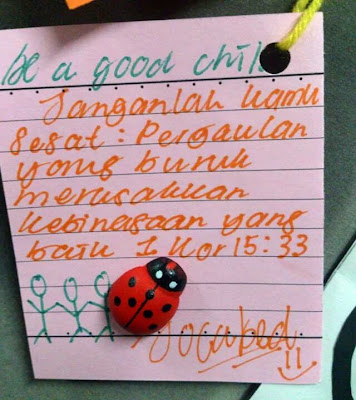 be a good chil
Janganlah kamu
Sesat : Pergaulan
yang buruk
merusakkan
kebinasaan yang
baik 1 Kor 15 : 33
Yocabed